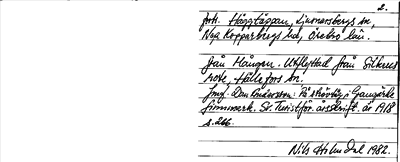 2.
förf. Höggtäppan, Ljusnarsbergs sn,
Nya Kopparbergs hd, Örebro län.
från Mången. Utflyttad från Silkens
rote, Hällefors sn.
Jmf. Dan Andersson: På strövtåg i Gangärde
finnmark. Sv. Turistför. årsskrift. år 1918
s. 266.
Nils Holmdal 1982.